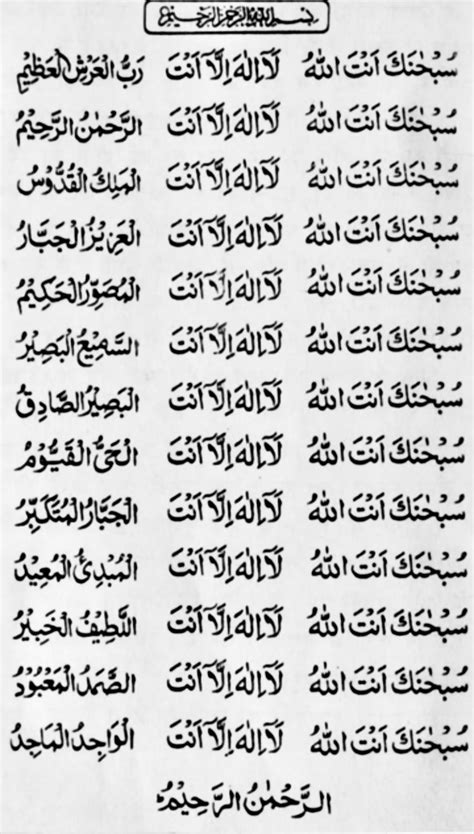 بسم الله الرحمن الرحيم
سُبْحٰنَكَ اَنْتَ اللهُ لَآ اِلٰهَ اِلَّآ اَنْتَ رَبُّ الْعَرْشِ الْعَظِيْمِ
سُبْحٰنَكَ اَنْتَ اللهُ لَآ اِلٰهَ اِلَّآ اَنْتَ الرَّحْمٰنُ الرَّحِيْمُ
سُبْحٰنَكَ اَنْتَ اللهُ لَآ اِلٰهَ اِلَّآ اَنْتَ الْمَلِكُ الْقُدُّوْسُ
سُبْحٰنَكَ اَنْتَ اللهُ لَآ اِلٰهَ اِلَّآ اَنْتَ الْعَزِيْزُ الْجَبَّارُ
سُبْحٰنَكَ اَنْتَ اللهُ لَآ اِلٰهَ اِلَّآ اَنْتَ الْمُصَوِّرُ الْحَكِيْمُ
سُبْحٰنَكَ اَنْتَ اللهُ لَآ اِلٰهَ اِلَّآ اَنْتَ السَّمِيْعُ الْبَصِيْرُ
سُبْحٰنَكَ اَنْتَ اللهُ لَآ اِلٰهَ اِلَّآ اَنْتَ الْبَصِيْرُ الصَّادِقُ
سُبْحٰنَكَ اَنْتَ اللهُ لَآ اِلٰهَ اِلَّآ اَنْتَ الْحَیُّ الْقَيُّوْمُ
سُبْحٰنَكَ اَنْتَ اللهُ لَآ اِلٰهَ اِلَّآ اَنْتَ الْجَبَّارُ الْمُتَكَبِّرُ
سُبْحٰنَكَ اَنْتَ اللهُ لَآ اِلٰهَ اِلَّآ اَنْتَ الْمُبْدِئُ الْمُعِيْدُ
سُبْحٰنَكَ اَنْتَ اللهُ لَآ اِلٰهَ اِلَّآ اَنْتَ اللَّطِيْفُ الْخَبِيْرُ
سُبْحٰنَكَ اَنْتَ اللهُ لَآ اِلٰهَ اِلَّآ اَنْتَ الصَّمَدُ الْمَعْبُوْدُ
سُبْحٰنَكَ اَنْتَ اللهُ لَآ اِلٰهَ اِلَّآ اَنْتَ الْوَاجِدُ الْمَاجِدُ
الرَّحْمٰنُ الرَّحِيْمُ